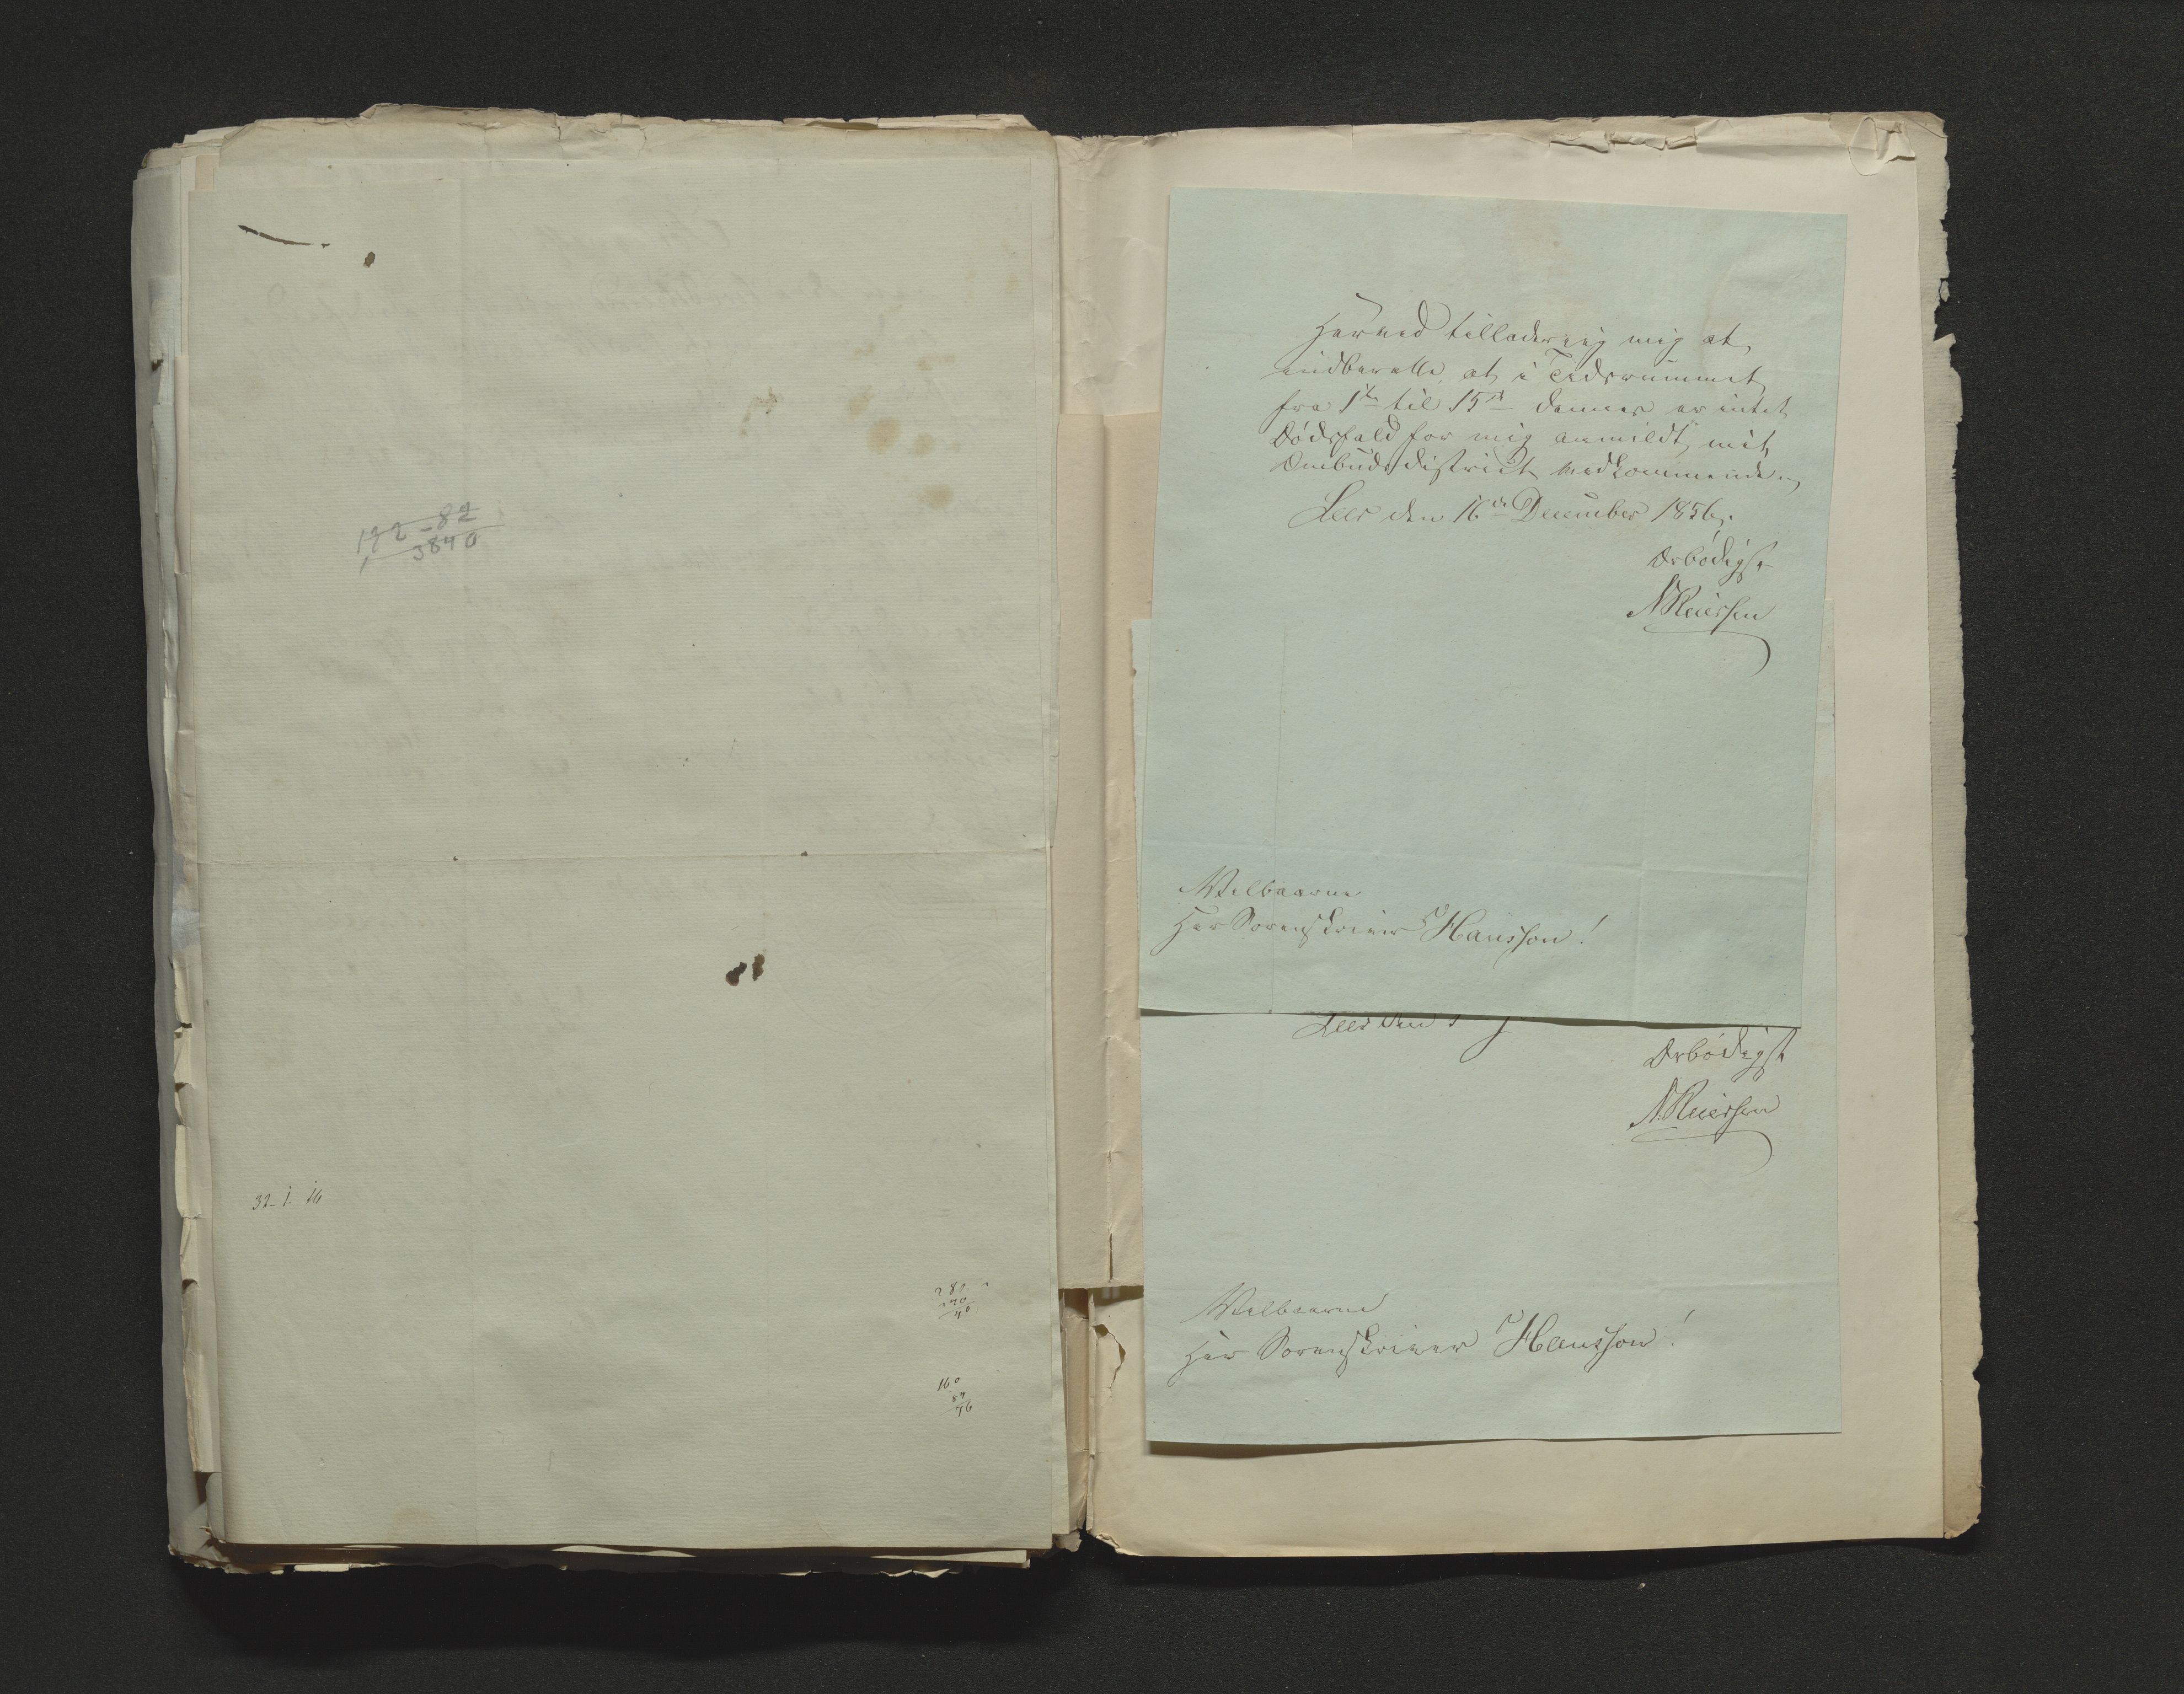 192 - 82
3840
32 - 1. 16
280
240
40
160
84
76
Herved tillader jeg mig at
indberette, at i Tidsrummet
fra 1ste til 15de dennes er intet
Dødsfald for mig anmeldt, mit
Ombudsdistrict vedkommende.
Lier den 16de December 1856.
Ærbødigst
NReiersen
Velbaarne
Her Sorenskriver Hansson!
Lier den
Ærbødigst
NReiersen
Velbaarne
Her Sorenskriver Hansson!